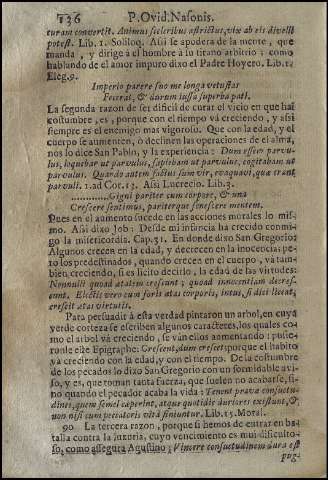 136 P. Ovid. Nasonis.
turam convertit. Animus sceleribus astrictus, vix ab eis divelli
potest. Lib. 1. Soliloq. Assi se apodera de la mente, que
manda, y dirige à el hombre à su titano arbitrio; como
hablando de el amor impuro dixo el Padre Hoyero. Lib. 1.
Eleg. 9.
Imperio parere suo me longa vetustas
Fecerat, & durum jussa superba pati.
La segunda razon de ser dificil de curar el vicio en que hai
costumbre, es, porque con el tiempo và creciendo, y assi
siempre es el enemigo mas vigoroso. Que con la edad, y el
cuerpo se aumenten, ò declinen las operaciones de el alma,
nos lo dice San Pablo, y la experiencia: Dum essem parvu-
lus, loquebar ut parvulus, sapiebam ut parvulus, cogitabam ut
parvulus. Quando autem factus sum vir, evaquavi, quæ erant
parvuli. 1. ad Cor. 13. Assi Lucrecio. Lib. 3.
............Gigni pariter cum corpore, & una
Crescere sentimus, pariterque senescere mentem.
Pues en el aumento sucede en las acciones morales lo mis-
mo. Assi dixo Job: Desde mi infancia ha crecido conmi-
go la misericordia. Cap. 31. En donde dixo San Gregorio:
Algunos crecen en la edad, y decrecen en la inocencia; pe-
ro los predestinados, quando crecen en el cuerpo, và tam-
bien creciendo, si es licito decirlo, la edad de las virtudes:
Nonnulli quoad ætatem crescunt; quoad innocentiam decres-
cunt. Electis vero cum foris ætas corporis, intus, si dici liceat,
crescit ætas virtutis.
Para persuadir à esta verdad pintaron un arbol, en cuya
verde corteza se escriben algunos caractères, los quales co-
mo el arbol và creciendo, se van ellos aumentando; pusie-
ronle este Epigraphe: Crescent, dum crescet; porque el habito
và creciendo con la edad, y con el tiempo. De la costumbre
de los pecados lo dixo San Gregorio con un formidable avi-
so, y es, que toman tanta fuerza, que suelen no acabarse, si-
no quando el pecador acaba la vida: Tenent pravæ consuetu-
dines, quem semel caperint, atque quotidie duriores existunt, &
non nisi cum peccatoris vita finiuntur. Lib. 15. Moral.
90 La tercera razon, porque si hemos de entrar en ba-
talla contra la luxuria, cuyo vencimiento es mui dificulto-
so, como assegura Agustino; Vincere consuetudinem dura est
pug-